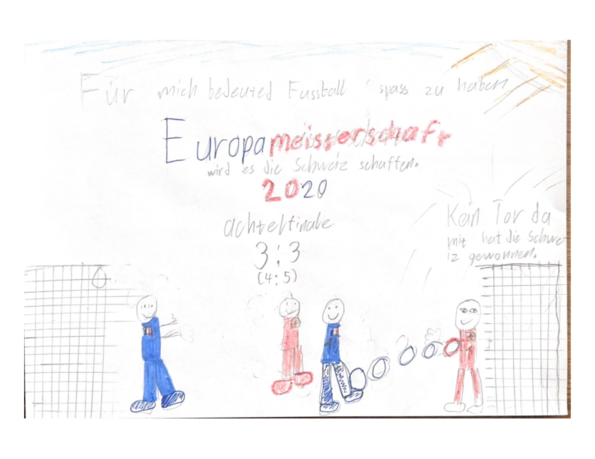 Für mich bedeuted Fussball spass zu haben
Europameisserschaft
wird es die Schweiz schaffen.
2020
achtelfinale
3:3
(4:5)
Kan Tor da
mit hat die Schwe
iz gewonnen.